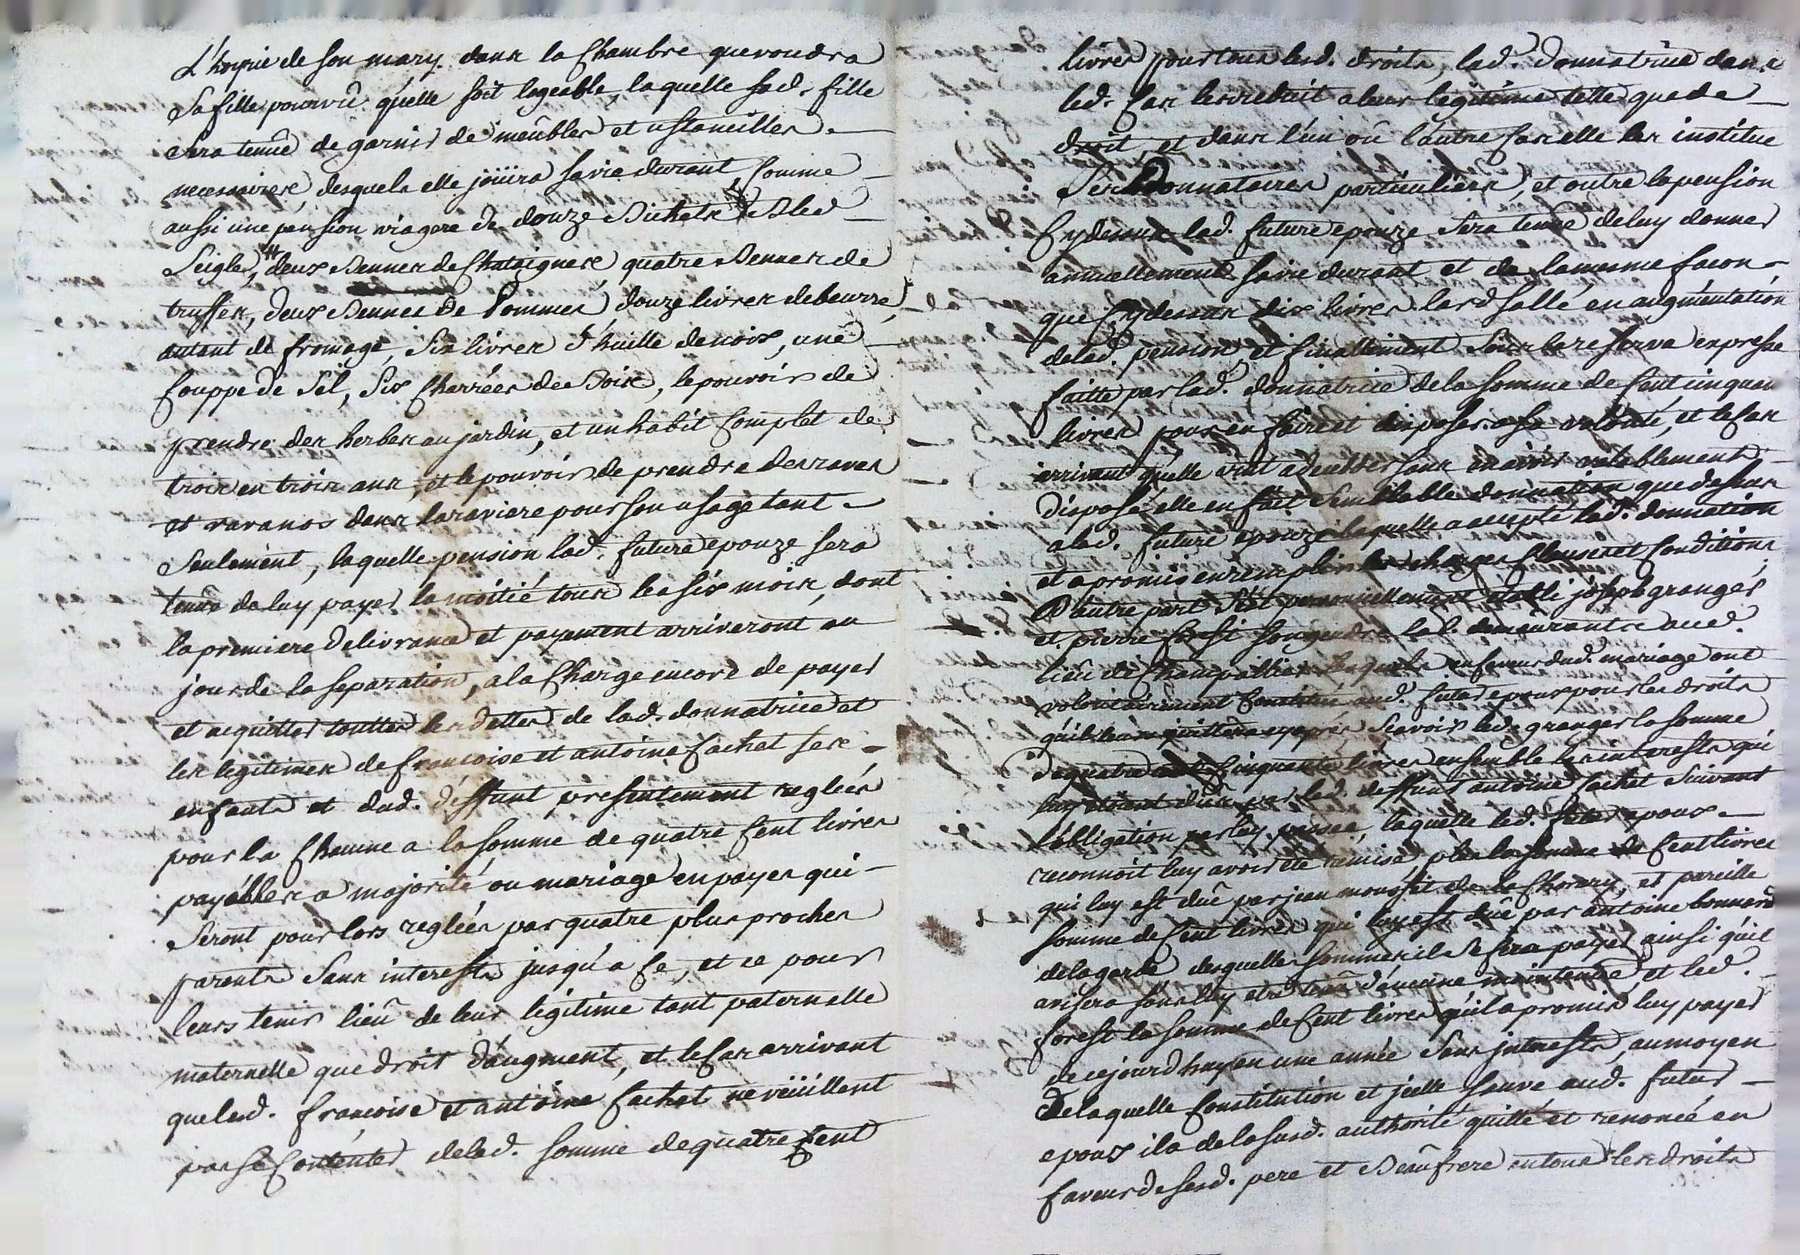 L'hoyrie de son mary dans la Chambre que voudra
sa fille pourvû qu'elle soit logeable, laquelle sad. fille
sera tenüe de garnir de meûbles et ustancilles
necessaires, desquels elle joüira sa vie durant, Comme
aussi une pension viagere de douze Bichets Bled
Seigle, deux Bennes de Chataignes, quatre Bennes de
truffes, deux Bennes de Pommes, douze livres de beurre,
autant de fromage, Six livres d'huille de noix, une
Couppe de Sel, Six Charrées de Bois, le pouvoir de
prendre des herbes au jardin, et un habit Complet de
trois en trois ans, et le pouvoir de prendre des raves
et ravanos dans la raviere pour son usage tant
Seulement, laquelle pension lad. future epouze sera
tenue de luy payer la moitié tous les six mois, dont
la premiere delivrance et payement arriveront au
jour de la separation, a la Charge encore de payer
et acquitter touttes les dettes de lad. donnatrice et
les legitimes de francoise et antoine Cachet ses
enfants et dud. deffunt presentement reglées
pour la Chacune a la somme de quatre Cent livres
payábles a majorité ou mariage en payes qui
Seront pour lors reglées par quatre plus proches
parents Sans interests jusqu'a Ce, et ce pour
leurs tenir lieû de leur legitime tant paternelle
maternelle que droit d'augment, et le Cas arrivant
que lesd. francoise et antoine Cachet ne veüillent
pas se Contenter delad. somme de quatre Cent
livres pour tous lesd. droits, lad. donnatrice dans
led. Cas les reduit a leur legitime telle que de
droit, et dans l'un oû l'autre Cas elle les institue
Ses donnataires particuliers, et outre la pension
Cydessus lad. future epouze Sera tenue de luy donner
annuellement sa vie durant et de la mesme facon
que Cydessus dix livres lard sallé en augméntation
de lad. pension, et finallement Sous la reserve expresse
faitte par lad. donnatrice de la somme de Cent cinquante
livres pour en faire et disposer a sa volonté, et le Cas
arrivant quelle vint a deceder sans en avoir vallablement
disposé, elle en fait Semblable donnation que dessus
a lad. future epouze laquelle a accepté lad. donnation
et a promis en remplir les charges Clauses et Conditions
D'autre part S'est personnellement etabli joseph granger
et pierre forest son gendre lab. demeurants aud.
lieû de Champallier lesquels en faveur dud. mariage ont
volontairement Constitué aud. futur epoux pour les droits
qu'il leurs quittera cyaprés, Scavoir led. granger la somme
de quatre Cent Cinquante livres ensemble les interests qui
luy etoient dus par led. deffunt antoine Cachet Suivant
l'obligation par luy passée, laquelle led. futur epoux
reconnoit luy avoir été remise, plus la somme de Cent livres
qui luy est dûe par jean de la Chorary, et pareille
somme de Cent livres qui luy est dûe par antoine bonnard
delagarde desquelles sommes il Se fera payer ainsi qu'il
avisera sans luy etre tenû d'aucune maintenüe, et led.
forest la somme de Cent livres qu'il a promis luy payer
de cejourdhuy en une année Sans interests, au moyen
de laquelle Constitution et jcelle sauve aud. futur
epoux il a de la susd. authorité quitté et renoncé en
faveur de sesd. pere et Beaûfrere en tous les droits